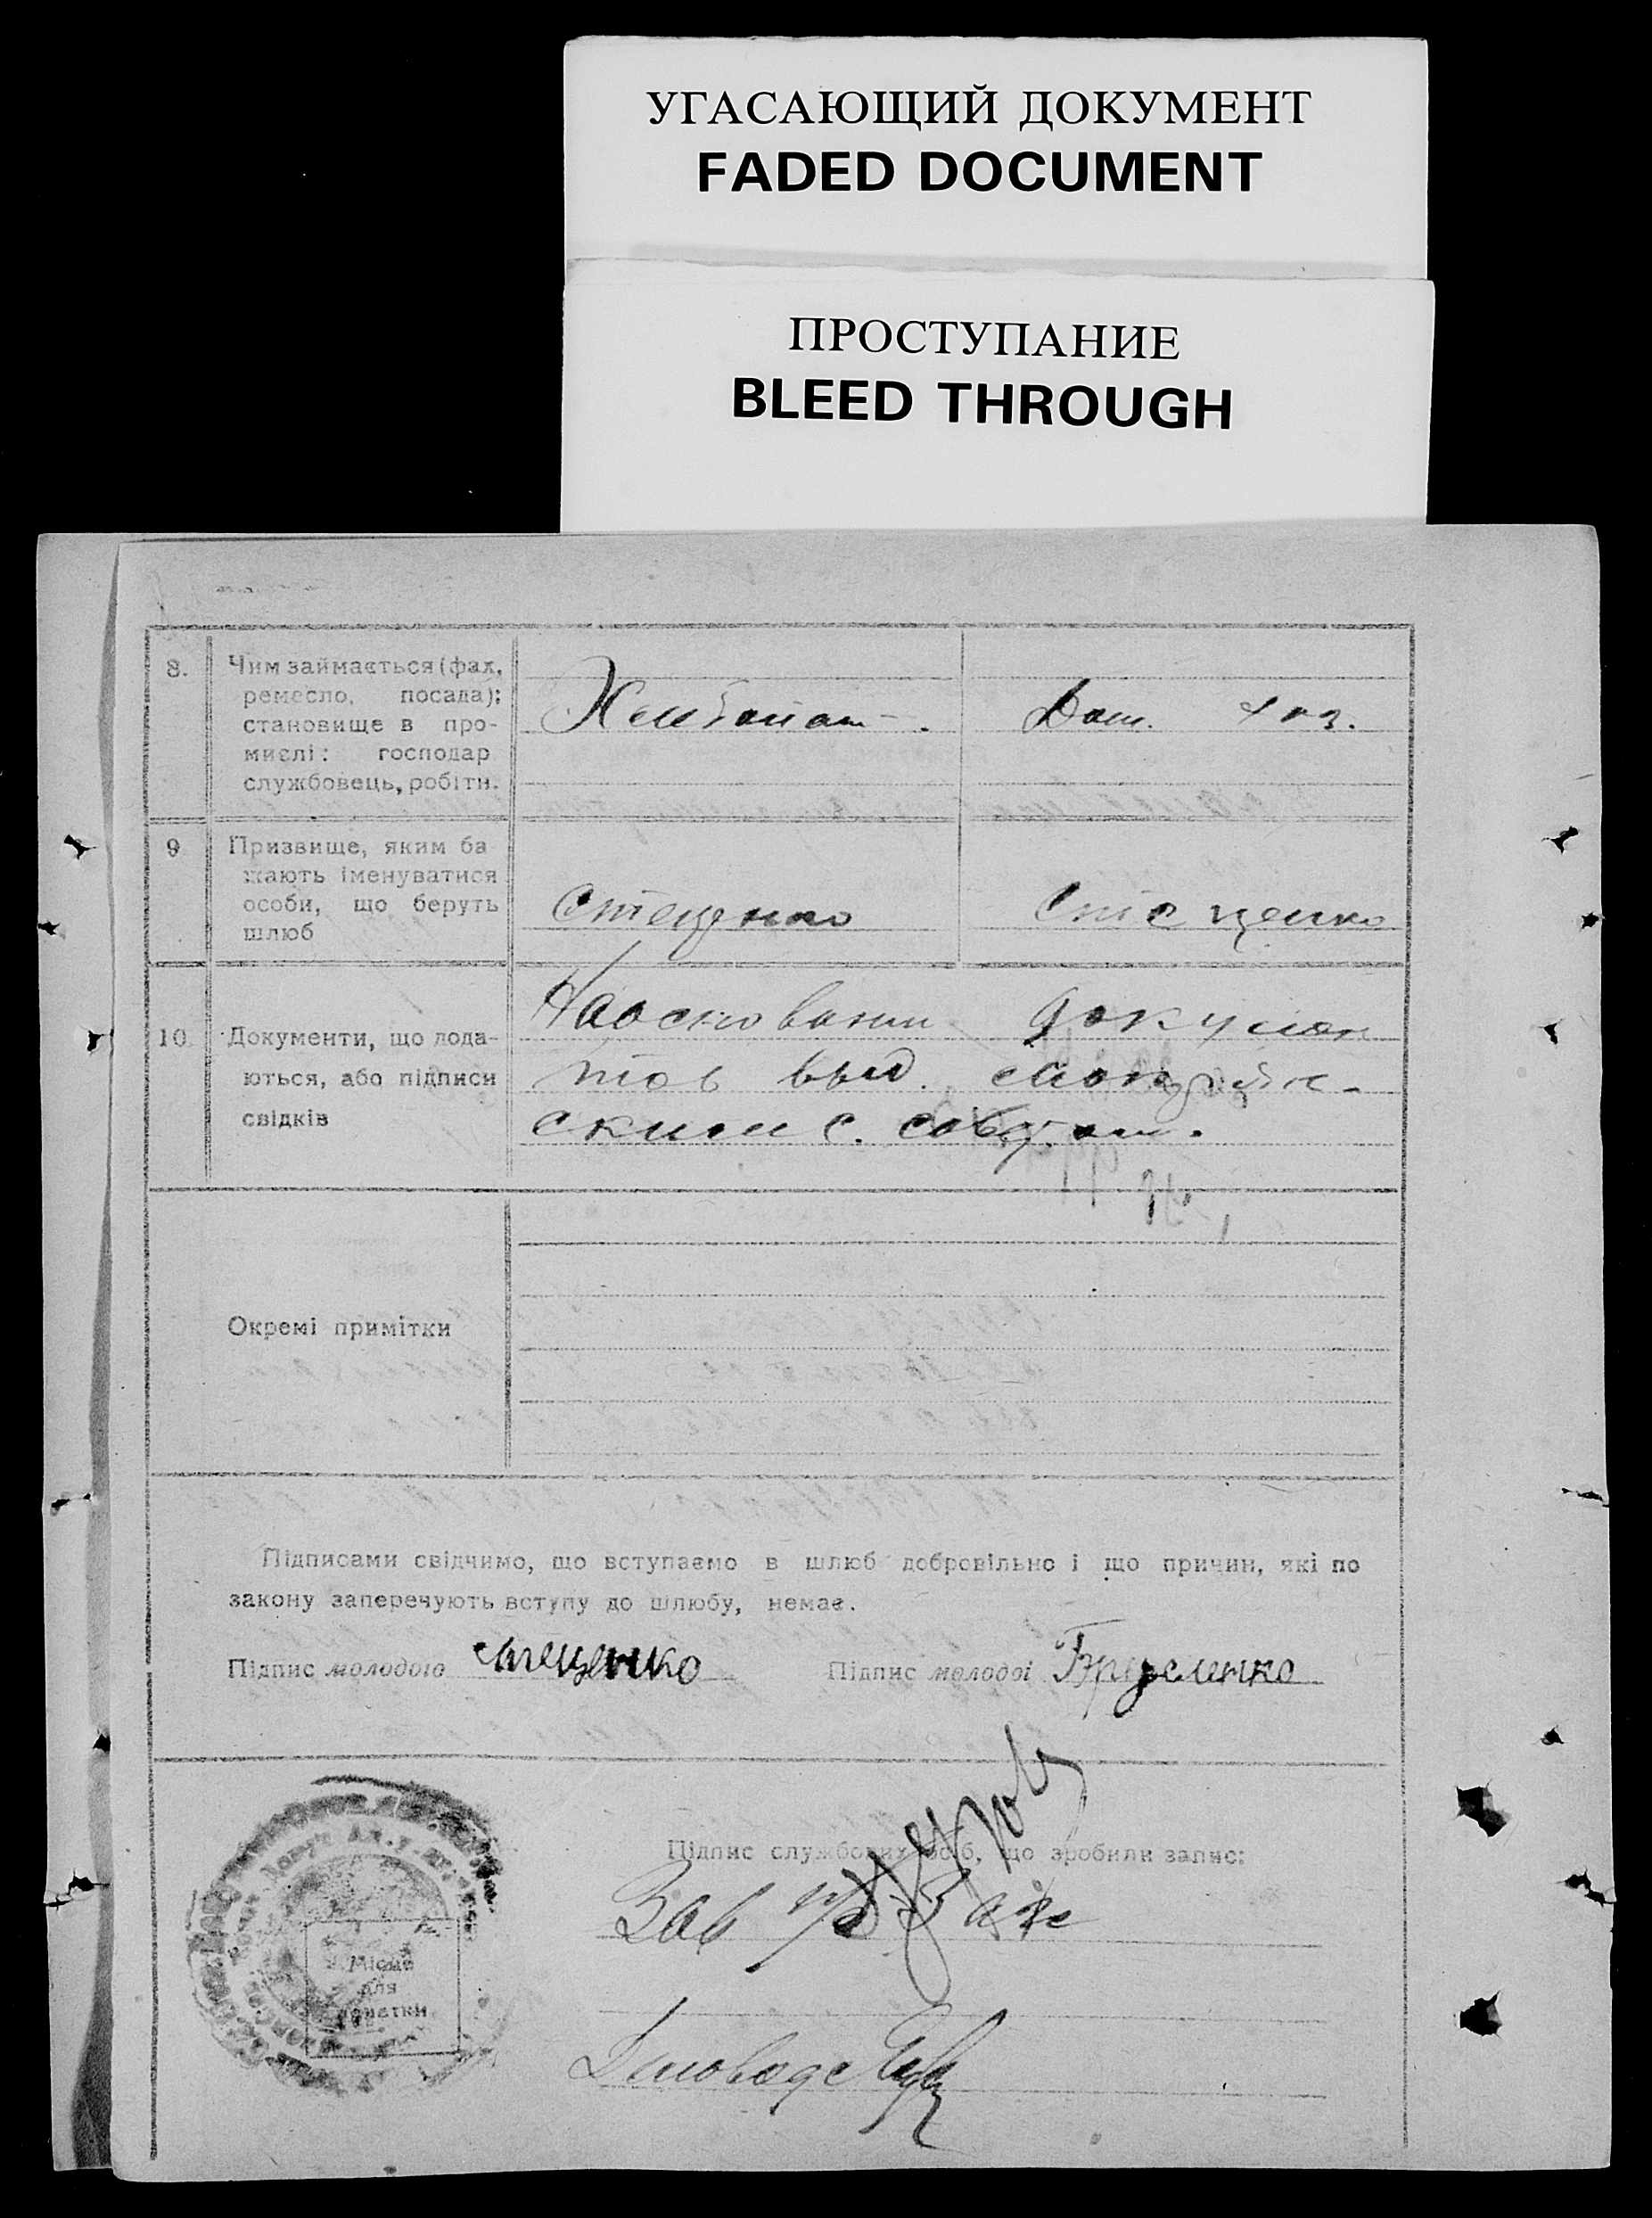 УГАСАЮЩИЙ ДОКУМЕНТ
FADED DOCUMENT
ПРОСТУПАНИЕ
BLEED THROUGH
8.
Чим займається (фах,
ремесло, посада);
становище в про-
мислі: господар
службовець, робітн.
Дом. хоз.
9
Призвище, яким ба
жають іменуватися
особи, що беруть
шлюб
Стеценко
Стеценко
10.
Документи, що дода-
ються, або підписи
свідків
На основании докумен
тов выд.
ским с. советом.
Окремі примітки
Підписами свідчимо, що вступаємо в шлюб добровільно і що причин, які по
закону заперечують вступу до шлюбу, немає.
Підпис молодого Стеценко
Підпис молодої
Підпис службових осіб, що зробили запис:
Зав
Місце
для
печатки
Діловод